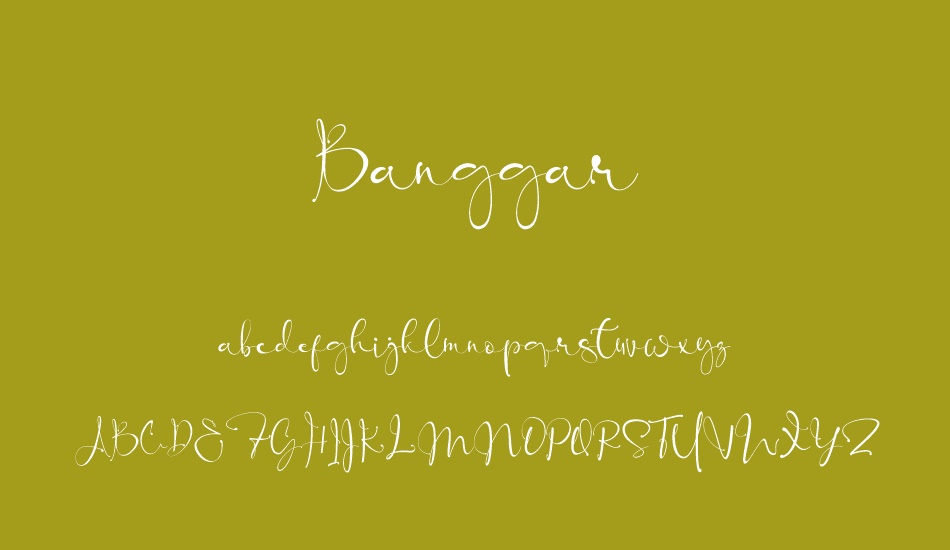 Banggar
abcdefghijklmnopqrstuvwxyz
ABCDEFGHIJKLMNOPQRSTUVWXYZ